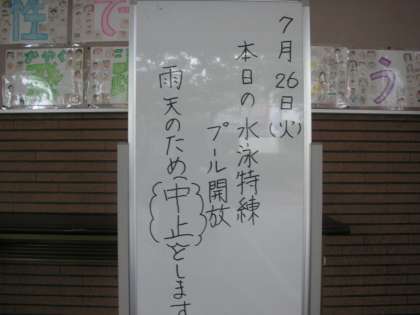 7月26日(火)
本日の水泳特練
プール開放
雨天のため中止とします
性
で
う